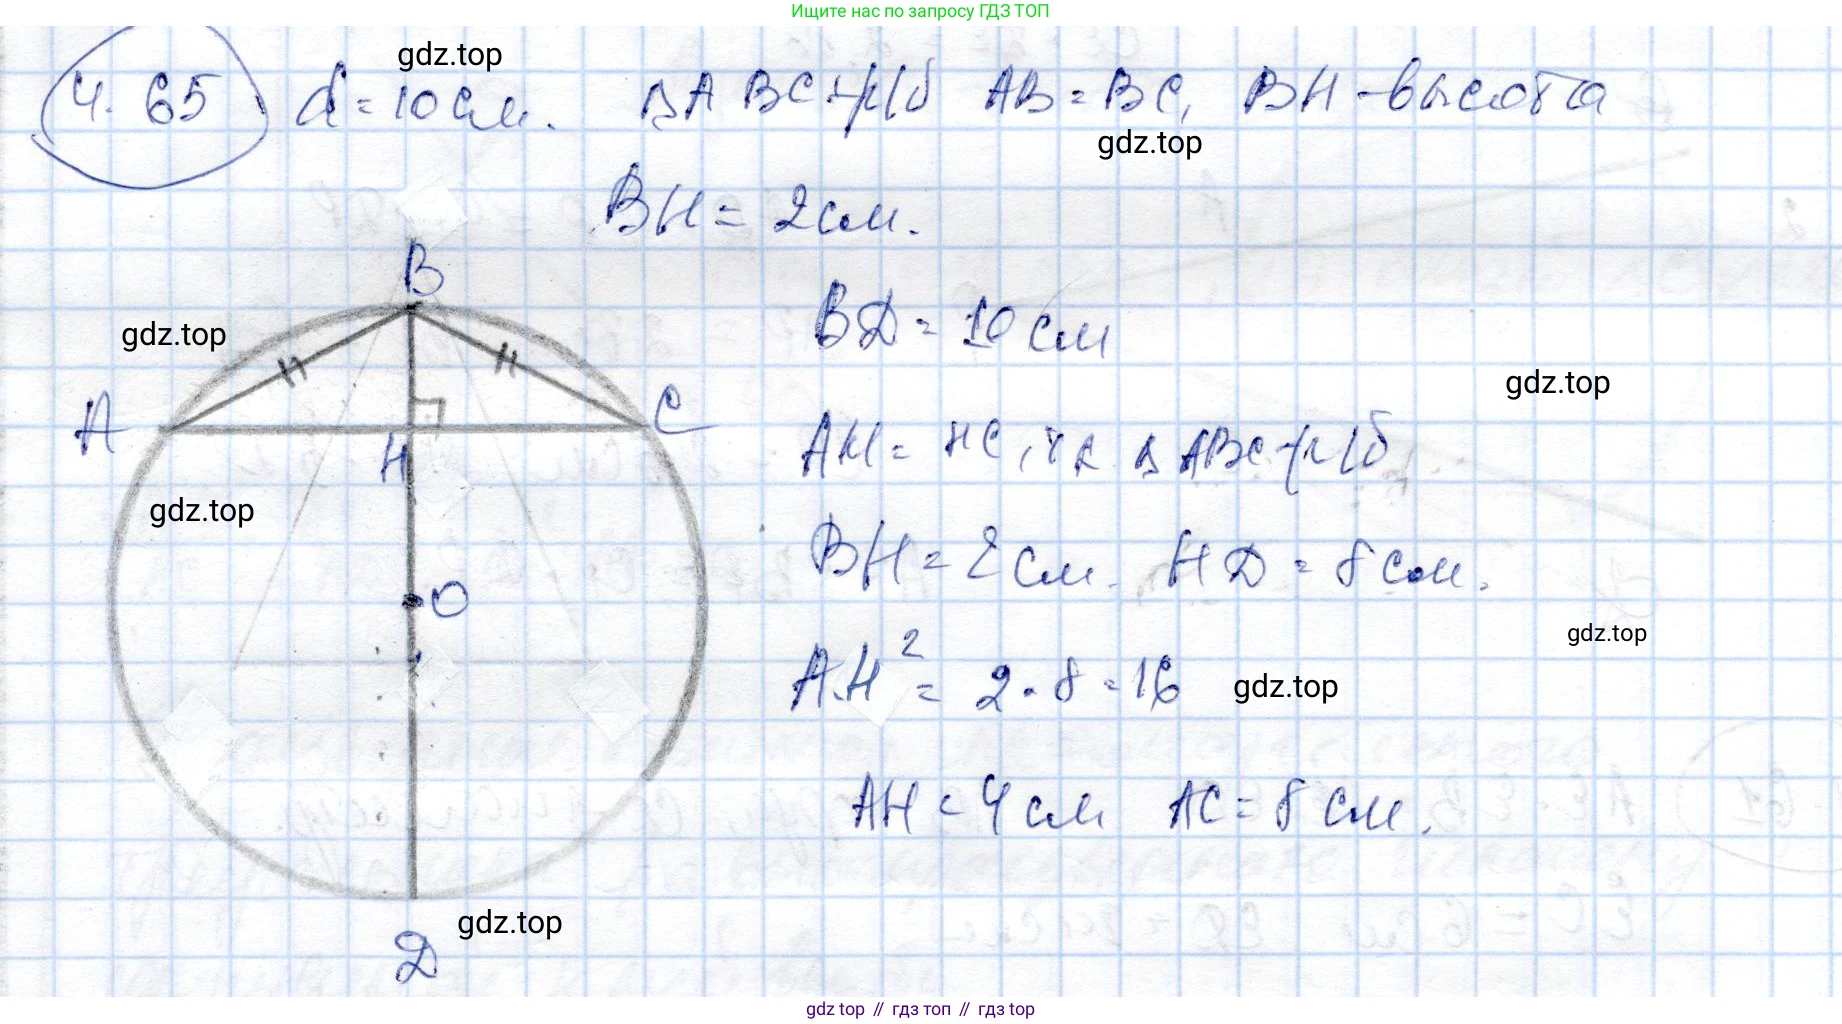 Ищите нас по запросу ГДЗ ТОП
gdz.top
4.65 d = 10 см. ΔABC - р/б AB = BC, BH - высота
gdz.top
BH = 2 см.
B
BD = 10 см
gdz.top
gdz.top
A
C
H
AH = HC, т.к ΔABC - р/б
gdz.top
BH = 2 см. HD = 8 см.
O
gdz.top
AH² = 2 · 8 = 16
gdz.top
AH = 4 см AC = 8 см.
gdz.top
D
gdz top // гдз топ // гдз top